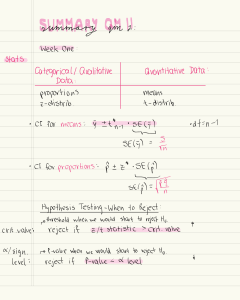 SUMMARY QM II
Week One
Stats:
Categorical/Qualitative Data:
Quantitative Data:
proportions
mean
z-distrib.
t-distrib.
• CI for means: ȳ ± t*n-1 · SE(ȳ)
• df = n-1
SE(ȳ) = s/√n
• CI for proportions: p̂ ± z* · SE(p̂)
SE(p̂) = √(p̂q̂/n)
Hypothesis Testing - When to Reject:
• threshold when we would start to reject H₀
crit value: reject if z/t statistic > crit value
when we would start to reject H₀
level: reject if P-value < α level